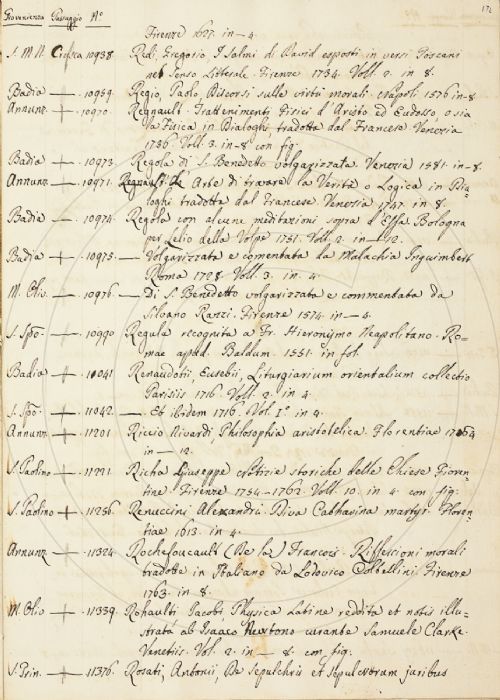 Provenienza Passaggio N.º
172
Firenze 1627. in-4.
S. M. N. Crusca 10938. Redi, Gregorio, I Salmi di David esposti in versi Toscani
nel senso litterale. Firenze 1734. Voll. 2. in 8.
Badia — + — .10959. Regio, Paolo, Discorsi sulle virtù morali. Napoli 1576 in-8.
Annunz — + — .10970. Regnault. Trattenimenti Fisici d'Aristo ed Eudosso, o sia
la Fisica in Dialoghi, tradotta dal Francese Venezia
1736. Voll. 3. in-8. con fig.
Badia — + — .10973. Regola di S. Benedetto volgarizzata. Venezia 1581. in-8.
Annunz — + — .10971. Regnault. L'Arte di trovare la Verità o Logica in Dia-
loghi tradotta dal Francese. Venezia 1747. in 8.
Badia — + — .10974. Regola con alcune meditazioni sopra d'Essa. Bologna
per Lelio della Volpe 1751. Voll. 2. in — 12.
Badia — + — .10975. — Volgarizzata e comentata da Malachia Inguimbert
Roma 1728. Voll. 3. in. 4.
M. Oliv. — — .10976. — Di S. Benedetto volgarizzata e commentata da
Silvano Razzi. Firenze 1574. in — 4.
S. Spõ. — — .10990 Regula recognita a Fr. Hieronymo Neapolitano. Ro-
mae apud. Baldum. 1551. in fol.
Badia — + — .11041 Renaudotii, Eusebii, Liturgiarium orientalium collectio
Parisiis 1716. Voll. 2. in 4.
S. Spõ — — .11042. — Et ibidem 1716. Vol. I.º in 4.
Annunz — + — .11201. Riccio Rivardi Philosophia aristotelica. Florentiae 1764
in — 12.
S. Paolino — + — .11221. Richa Giuseppe Notizie storiche delle Chiese Fioren-
tine. Firenze 1754-1762. Voll. 10. in 4. con fig.
S. Paolino + — .11256. Renuccini Alexandri. Diva Catharina martyr. Floren-
tiae 1613. in 4.
Annunz — + — .11324 Rochefoucault (De la) Francesi. Riflessioni morali
tradotte in Italiano da Lodovico Firenze
1763. in-8.
M. Oliv — + — .11339. Rohaulti Jacobi, Physica Latine reddita et notis illu-
strata ab Isaaco Newtono curante Samuele Clarke.
Venetiis. Vol. 2. in — 8. con fig.
S. Prin. — + — .11376. Rosati, Antonii, De sepulchris et sepulcrorum juribus